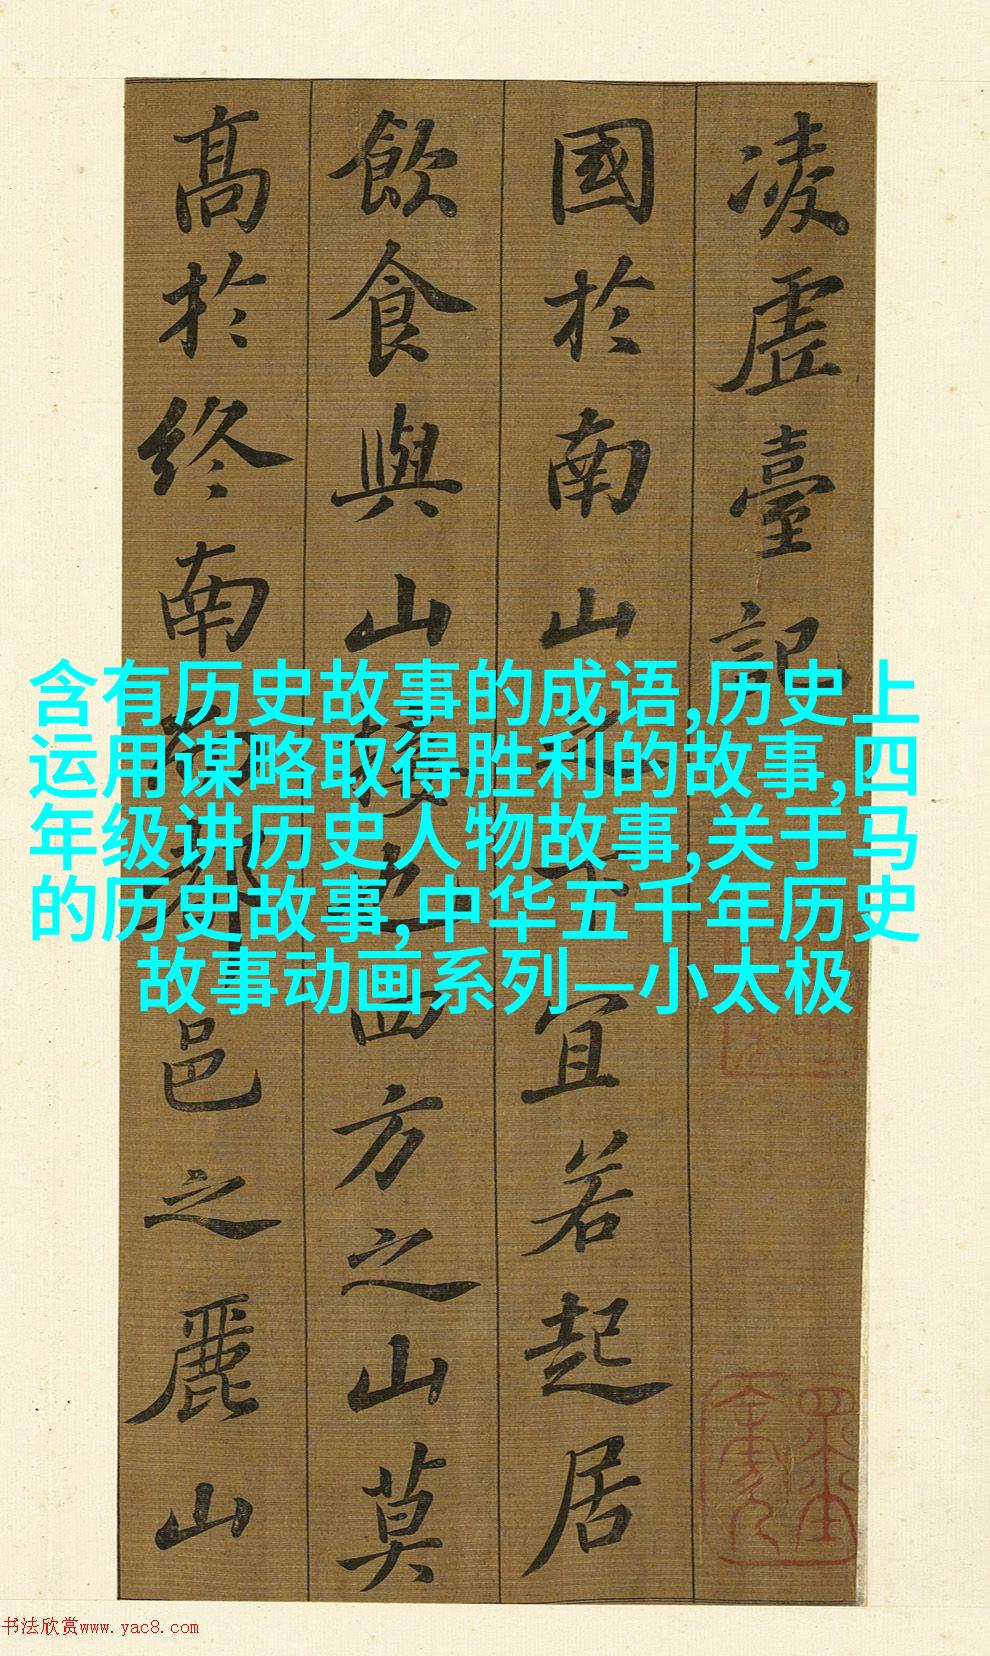 凌虛臺記
國於南山之下宜若起居
飲食與山接也四方之山莫
高於終南而都邑之麗山
含有历史故事的成语,历史上
运用谋略取得胜利的故事,四
年级讲历史人物故事,关于马
的历史故事,中华五千年历史
故事动画系列—小太极
书法欣赏www.yac8.com